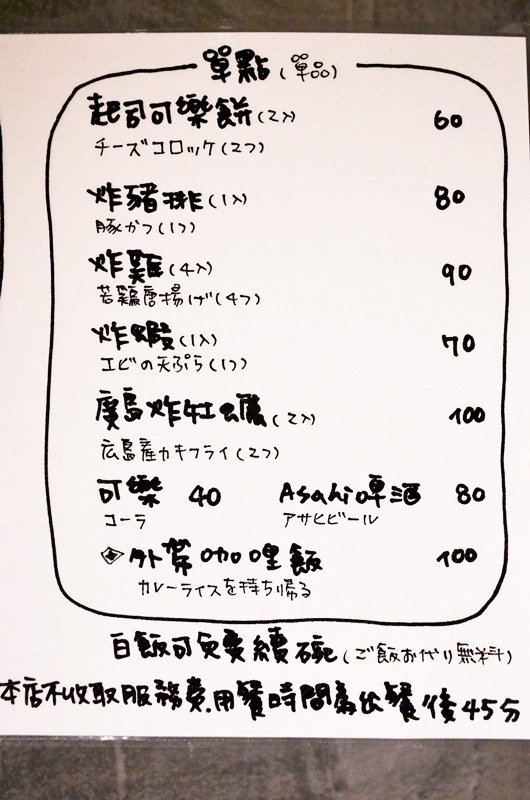 單點(單品)
起司可樂餅(2入) 60
チーズコロッケ(2つ)
炸豬排(1入) 80
豚かつ(1つ)
炸雞(4入) 90
若鶏唐揚げ(4つ)
炸蝦(1入) 70
エビの天ぷら(1つ)
廣島炸牡蠣(2入) 100
広島産カキフライ(2つ)
可樂 40 Asahi啤酒 80
コーラ アサヒビール
◈外帶咖哩飯 100
カレーライスを持ち帰る
白飯可免費續碗(ご飯お代り無料)
本店不收取服務費.用餐時間為出餐後45分